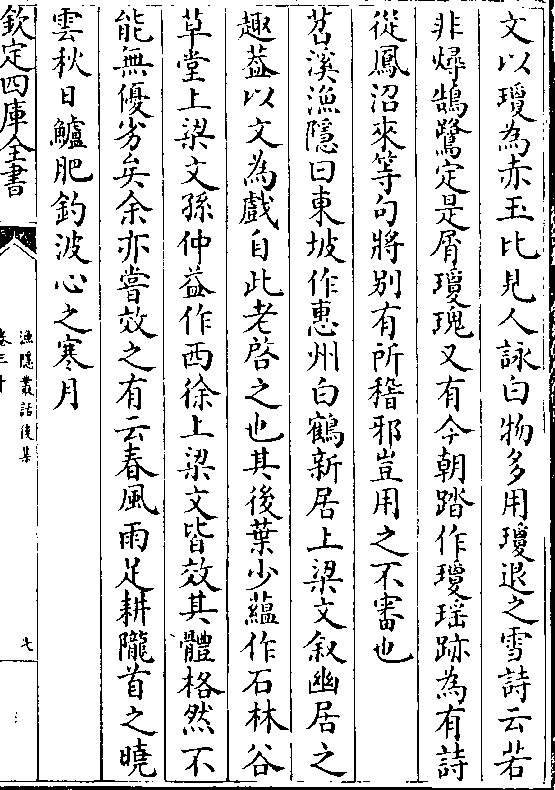 文以瓊為赤玉比見人詠白物多用瓊退之雪詩云若
非燖鵠鷺定是屑瓊瑰又有今朝踏作瓊瑶跡為有詩
從鳳沼來等句將别有所稽邪豈用之不審也
苕溪漁隱曰東坡作惠州白鶴新居上梁文叙幽居之
趣葢以文為戲自此老啓之也其後葉少藴作石林谷
草堂上梁文孫仲益作西徐上梁文皆效其體格然不
能無優劣矣余亦嘗效之有云春風雨足耕隴首之曉
雲秋日鱸肥釣波心之寒月
欽定四庫全書
漁隱叢話後集
卷三十
七